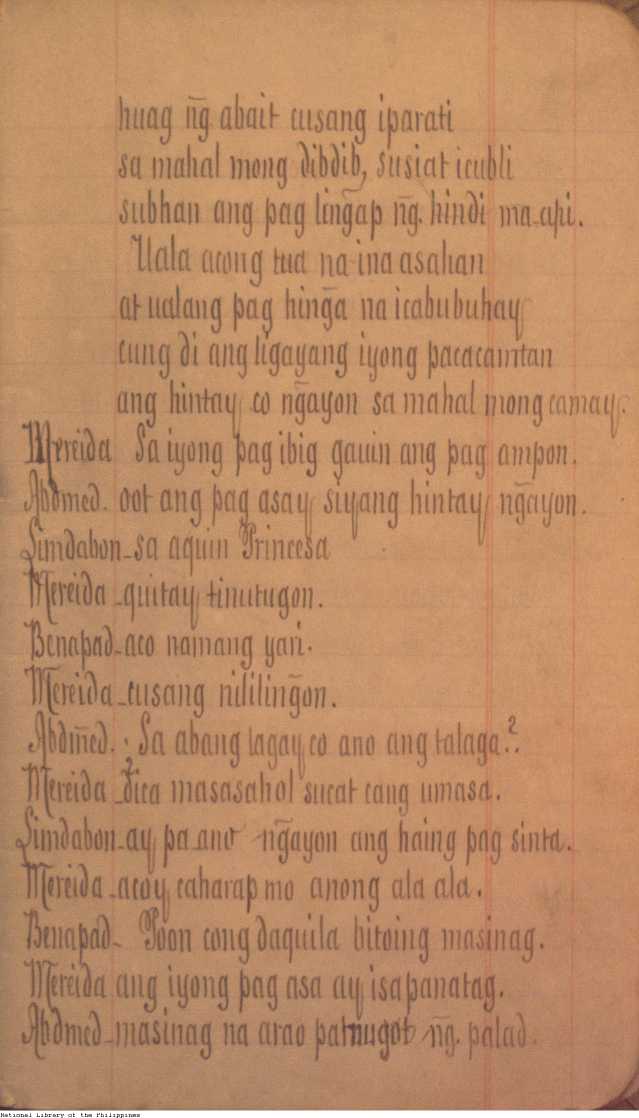 huag n͠g abait cusang iparati
sa mahal mong dibdib, susiat icubli
subhan ang pag ling͠ap n͠g. hindi ma-api.
Uala acong tua na ina asahan
at ualang pag hing͠a na icabubuhay
cung di ang ligayang iyong pacacamtan
ang hintay co ng͠ayon sa mahal mong camay.
Mereida Sa iyong pag ibig gauin ang pag ampon.
Abdmed. oot ang pag asay siyang hintay ng͠ayon.
Limdabon-sa aquin Princesa
Mereida-quitay tinutugon.
Benapad-aco namang yari.
Mereida-cusang nililing͠on.
Abdmed. Sa abang lagay co ano ang talaga?.
Mereida-dica masasahol sucat cang umasa.
Limdabon-ay pa-ano ng͠ayon ang haing pag sinta.
Mereida-acoy caharap mo anong ala ala.
Benapad- Poon cong daquila bitoing masinag.
Mereida ang iyong pag asa ay isapanatag.
Abdmed-masinag na arao patnugot n͠g. palad.
National Library of the Philippines